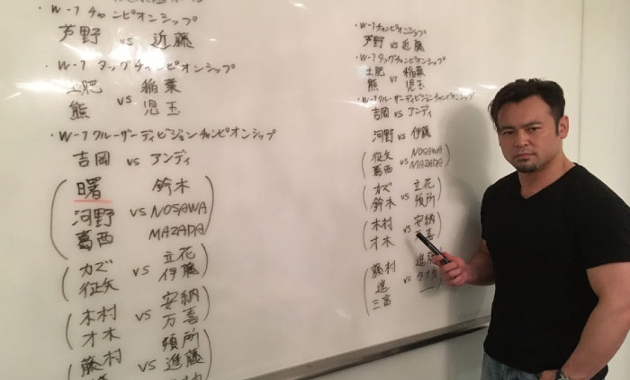 ・W-1チャンピオンシップ
芦野 vs 近藤
・W-1 タッグチャンピオンシップ
土肥 稲葉
熊 vs 児玉
・W-1クルーザーディビジョンチャンピオンシップ
吉岡 vs アンディ
曙 鈴木
河野 vs NOSAWA
葛西 MAZADA
カズ 立花
征矢 vs 伊藤
木村 安納
才木 vs 万喜
頓所
藤村 vs 進藤
・W-1チャンピオンシップ
芦野 vs 近藤
・W-1 タッグチャンピオンシップ
土肥 稲葉
熊 vs 児玉
・W-1クルーザーディビジョンチャンピオンシップ
吉岡 vs アンディ
河野 vs 伊藤
征矢 NOSAWA
葛西 vs MAZADA
カズ 立花
鈴木 vs 頓所
木村 安納
才木 vs 喜
藤村 進
vs
三富